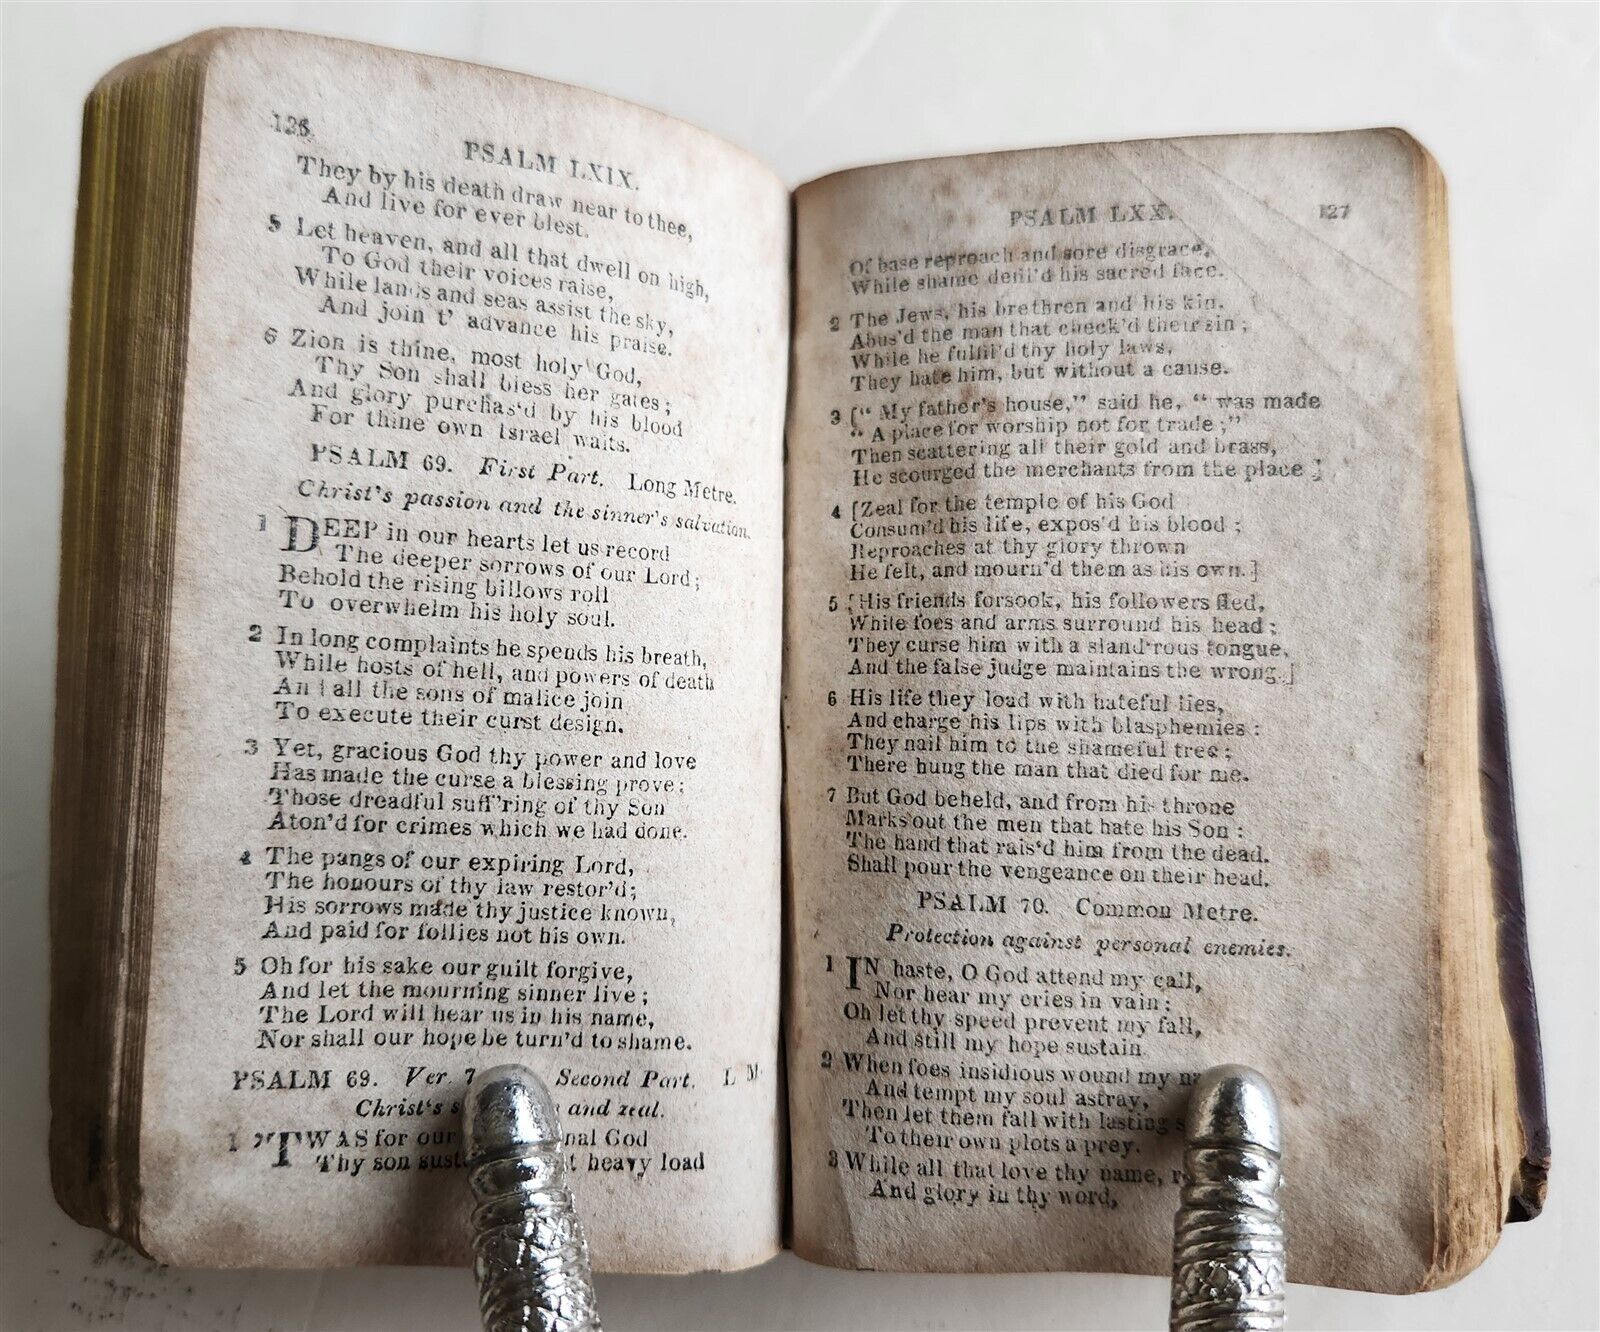 126
PSALM LXIX.
They by his death draw near to thee,
And live for ever blest.
5 Let heaven, and all that dwell on high,
To God their voices raise,
While lands and seas assist the sky,
And join t' advance his praise.
6 Zion is thine, most holy God,
Thy Son shall bless her gates;
And glory purchas'd by his blood
For thine own Israel waits.
PSALM 69. First Part. Long Metre.
Christ's passion and the sinner's salvation.
1 DEEP in our hearts let us record
The deeper sorrows of our Lord;
Behold the rising billows roll
To overwhelm his holy soul.
2 In long complaints he spends his breath,
While hosts of hell, and powers of death
And all the sons of malice join
To execute their curst design.
3 Yet, gracious God thy power and love
Has made the curse a blessing prove;
Those dreadful suff'ring of thy Son
Aton'd for crimes which we had done.
4 The pangs of our expiring Lord,
The honours of thy law restor'd;
His sorrows made thy justice known,
And paid for follies not his own.
5 Oh for his sake our guilt forgive,
And let the mourning sinner live;
The Lord will hear us in his name,
Nor shall our hope be turn'd to shame.
PSALM 69. Ver. 7 Second Part. L M.
Christ's and zeal.
1 'TWAS for our God
Thy son heavy load
PSALM LXX. 127
Of base reproach and sore disgrace,
While shame defil'd his sacred face.
2 The Jews, his brethren and his kin,
Abus'd the man that check'd their sin;
While he fulfil'd thy holy laws,
They hate him, but without a cause.
3 [" My father's house," said he, " was made
" A place for worship not for trade;"
Then scattering all their gold and brass,
He scourged the merchants from the place ]
4 [Zeal for the temple of his God
Consum'd his life, expos'd his blood;
Reproaches at thy glory thrown
He felt, and mourn'd them as his own.]
5 [His friends forsook, his followers fled,
While foes and arms surround his head;
They curse him with a sland'rous tongue,
And the false judge maintains the wrong.]
6 His life they load with hateful lies,
And charge his lips with blasphemies:
They nail him to the shameful tree;
There hung the man that died for me.
7 But God beheld, and from his throne
Marks out the men that hate his Son:
The hand that rais'd him from the dead.
Shall pour the vengeance on their head.
PSALM 70. Common Metre.
Protection against personal enemies.
1 IN haste, O God attend my call,
Nor hear my cries in vain;
Oh let thy speed prevent my fall,
And still my hope sustain
2 When foes insidious wound my
And tempt my soul astray,
Then let them fall with lasting
To their own plots a prey.
3 While all that love thy name,
And glory in thy word,